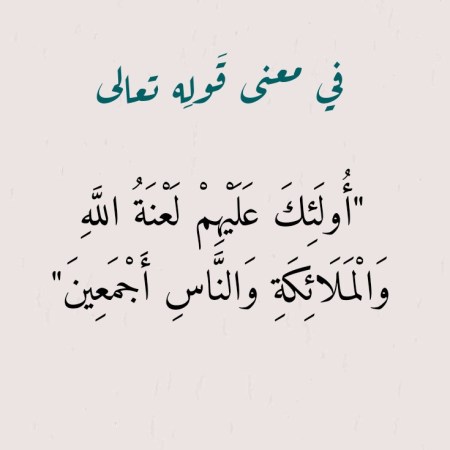 في معنى قَولِه تعالى
"أُولَئِكَ عَلَيْهِمْ لَعْنَةُ اللَّهِ
وَالْمَلَائِكَةِ وَالنَّاسِ أَجْمَعِينَ"